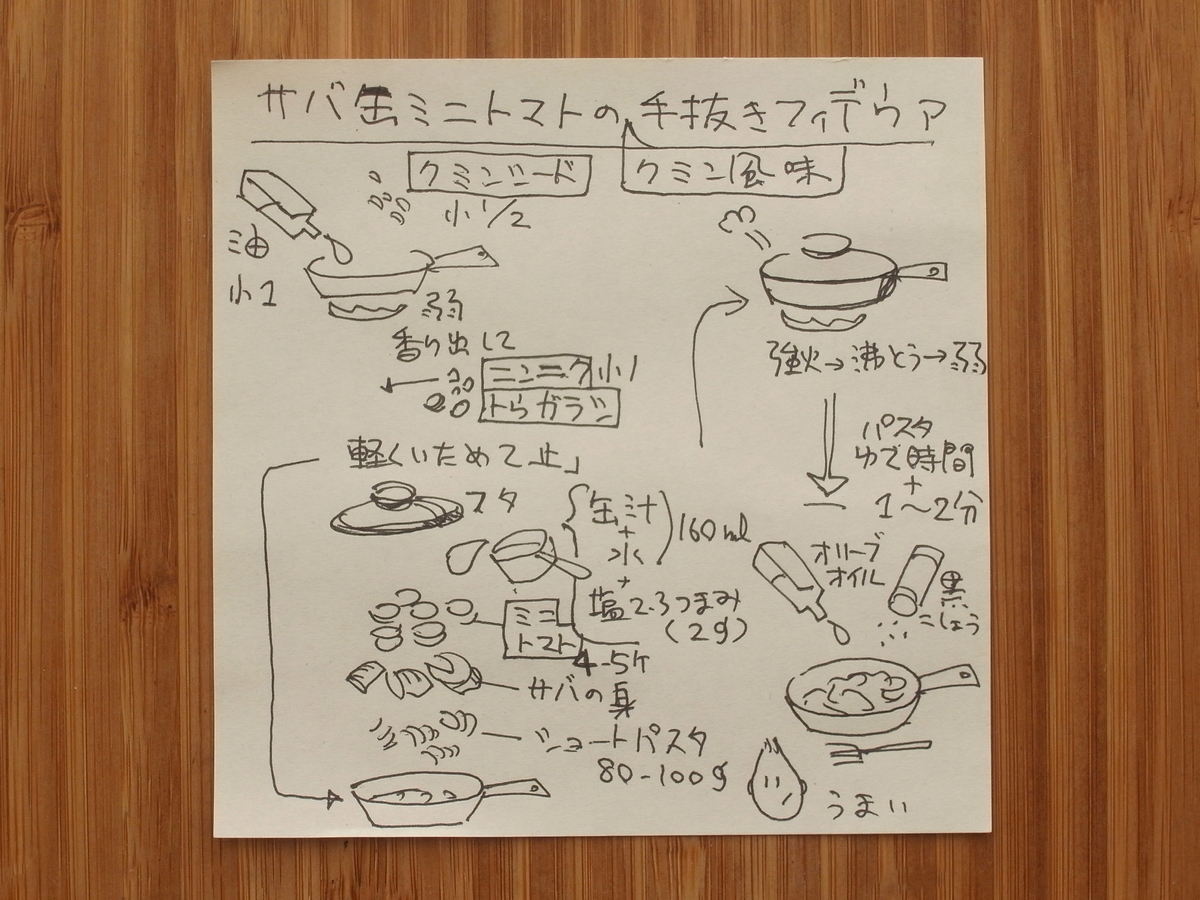 サバ缶ミニトマトの手抜きフィデウア
クミン風味
クミンシード
小1/2
油
小1
弱
香り出して
ニンニク小1
トウガラシ
軽くいためて止
フタ
缶汁
+
水
160ml
+
塩2.3つまみ
(2g)
ミニ
トマト
4-5ケ
サバの身
ショートパスタ
80-100g
強火→沸とう→弱
パスタ
ゆで時間
+
1〜2分
オリーブ
オイル
黒
こしょう
うまい